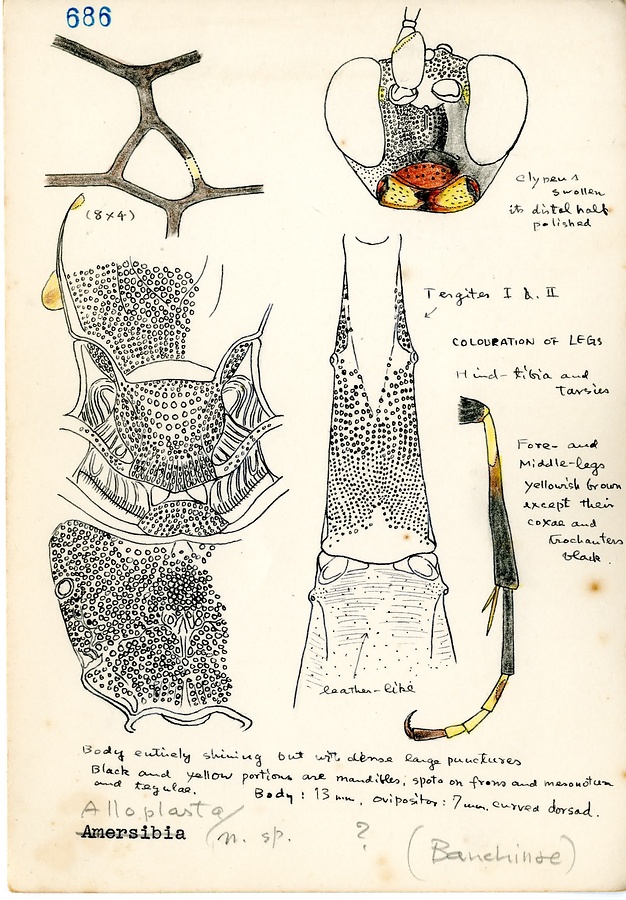 686
(8x4)
Clypeus
swollen
its distal half
polished
Tergites I & II
COLOURATION OF LEGS
Hind-tibia and
Tarsus
Fore- and
Middle-legs
yellowish brown
except their
coxae and
trochanters
black.
leather-like
Body entirely shining but with dense large punctures
Black and yellow portions are mandibles, spots on frons and mesonotum
and tegulae.
Body : 13 mm, ovipositor : 7 mm, curved dorsad.
Alloplasta
Amersibia / n. sp. ? (Banchinae)